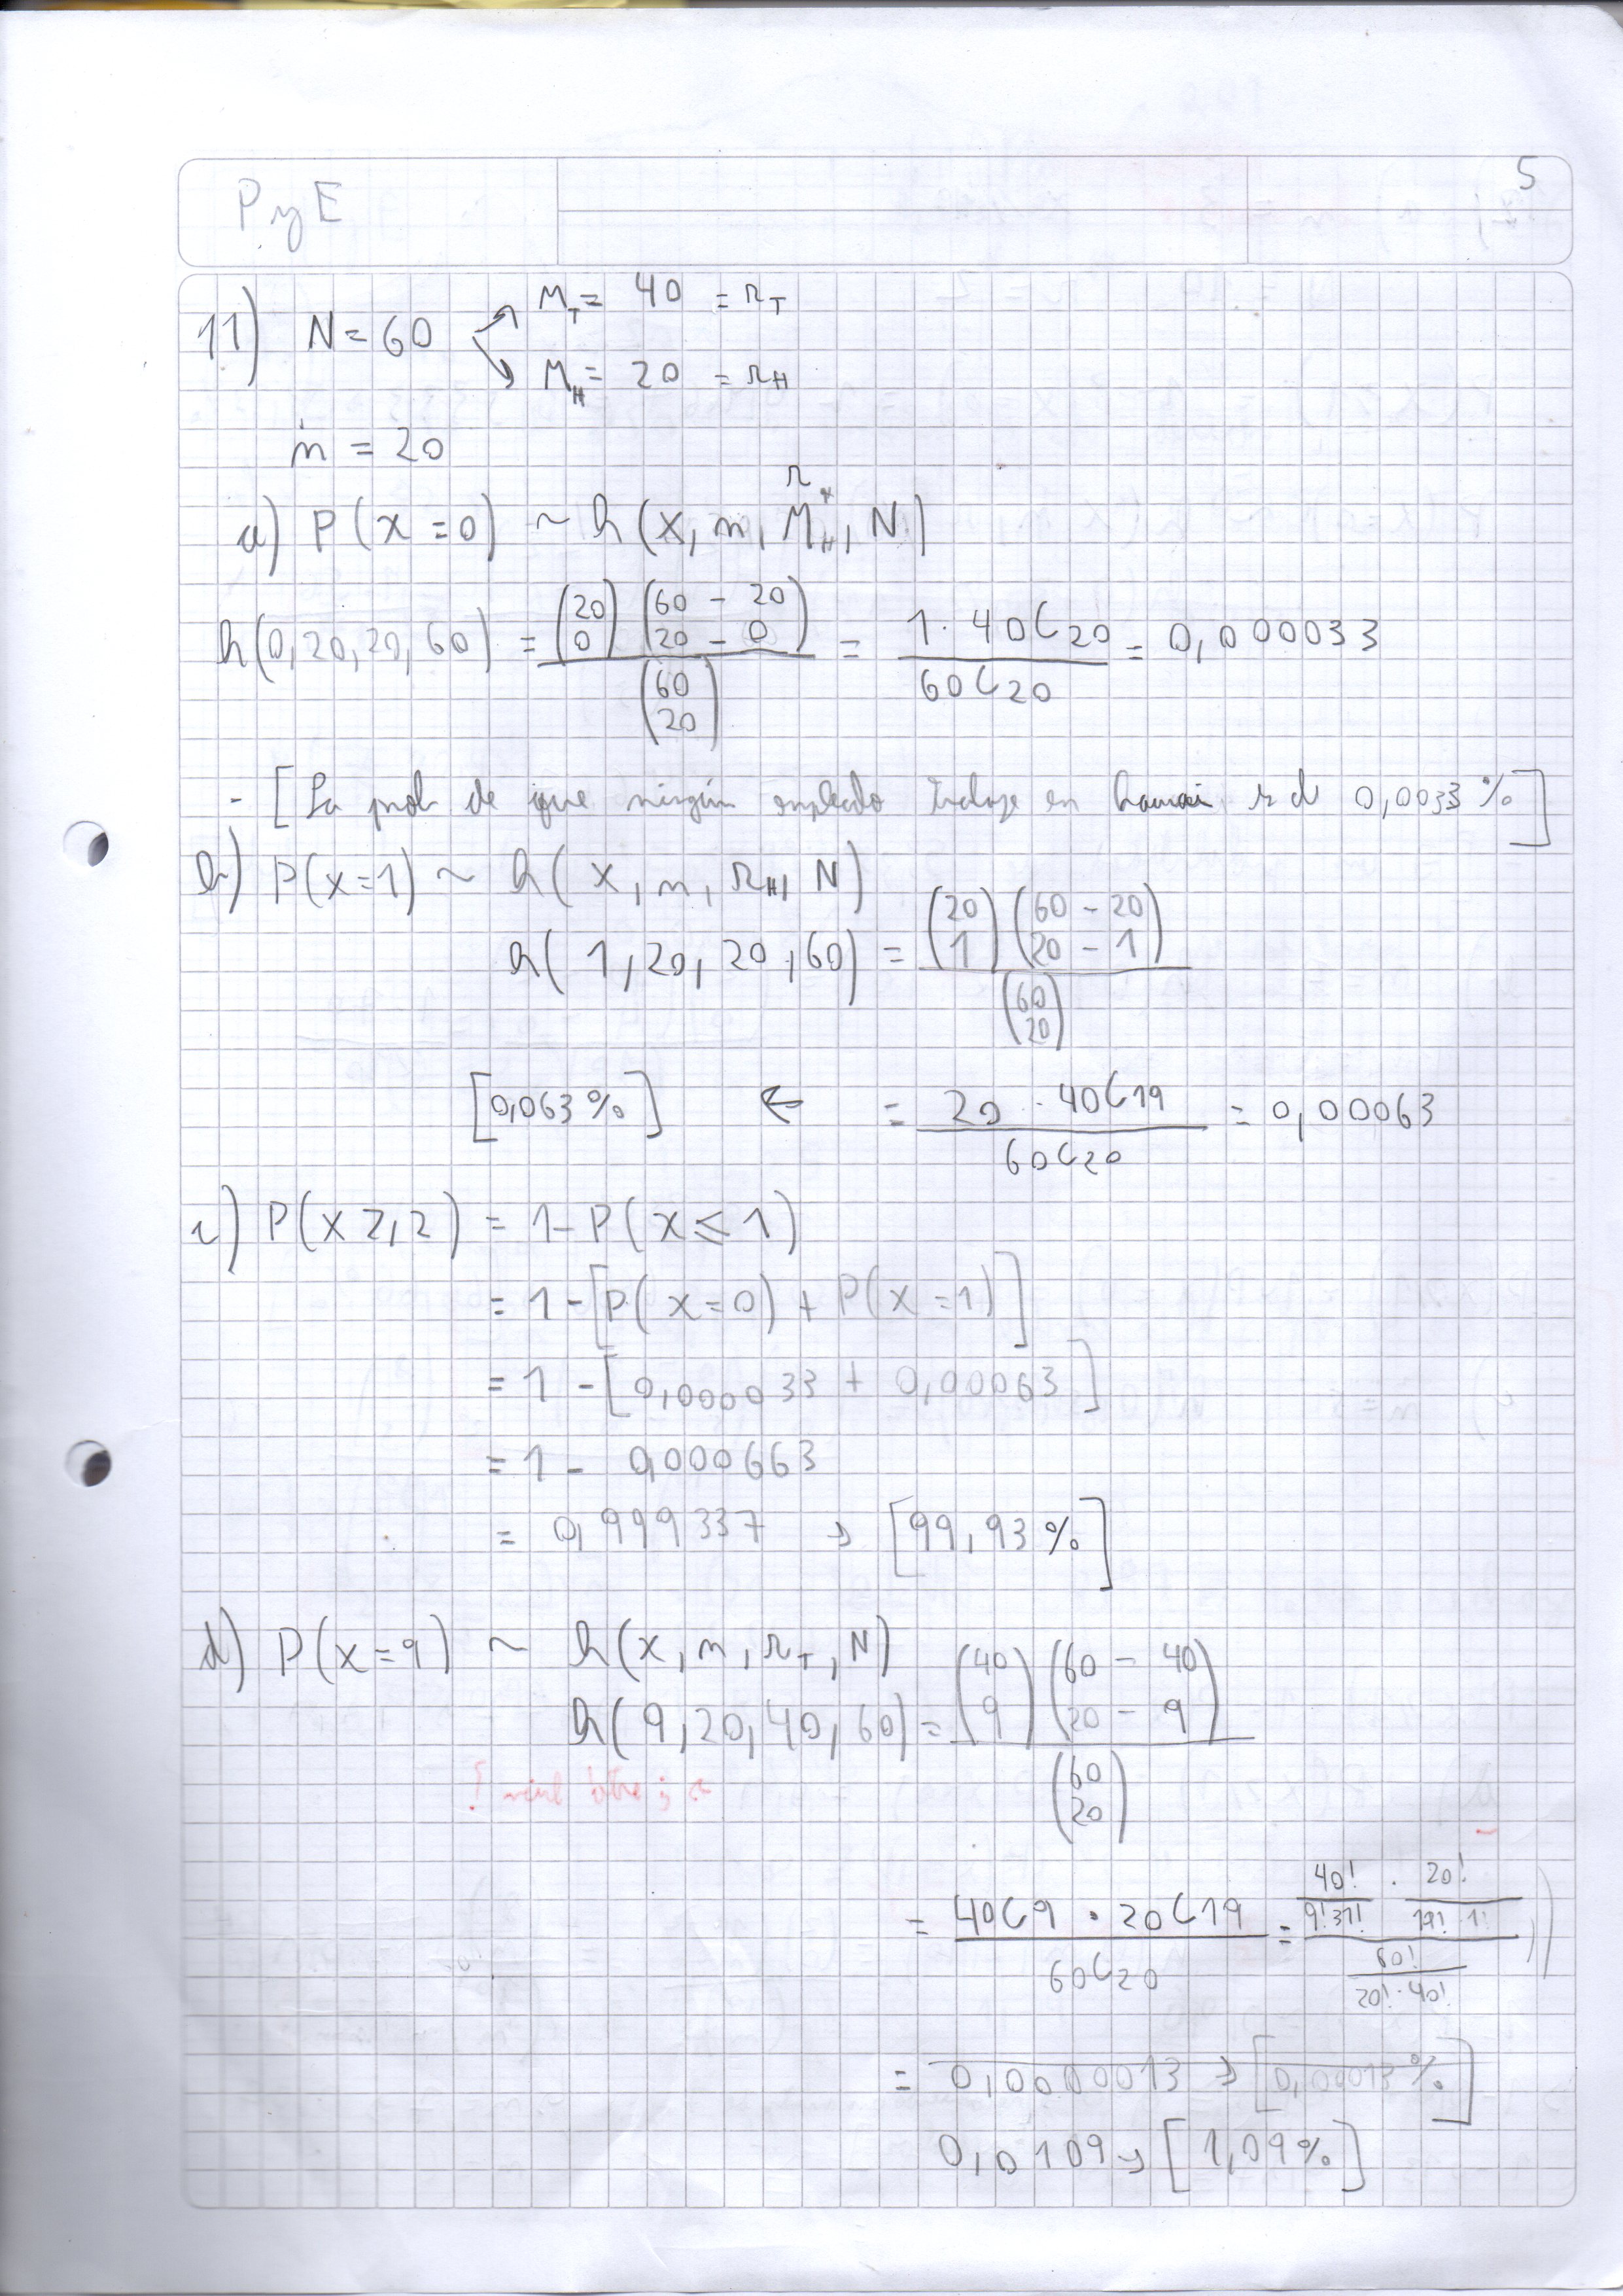 PyE
5
11) N = 60
M_T = 40 = r_T
M_H = 20 = r_H
n = 20
r
a) P(x=0) ~ h(x, n, M_H, N)
h(0,20,20,60) = (20 0) (60 - 20 20 - 0) / (60 20) = 1 · 40C20 / 60C20 = 0,000033
- [La prob de que ningún empleado trabaje en hawai es de 0,0033 %]
b) P(x=1) ~ h(x, n, r_H, N)
h(1,20,20,60) = (20 1) (60 - 20 20 - 1) / (60 20)
[0,063%] ← = 20 · 40C19 / 60C20 = 0,00063
c) P(x ≥ 2) = 1 - P(x ≤ 1)
= 1 - [P(x=0) + P(x=1)]
= 1 - [0,000033 + 0,00063]
= 1 - 0,000663
= 0,999337 → [99,93%]
d) P(x=9) ~ h(x, n, r_T, N)
h(9,20,40,60) = (40 9) (60 - 40 20 - 9) / (60 20)
= 40C9 · 20C19 / 60C20 = 40! / 9!31! · 20! / 19! · 1! / 60! / 20! · 40!
= 0,0000013 → [0,00013%]
0,0109 → [1,09%]